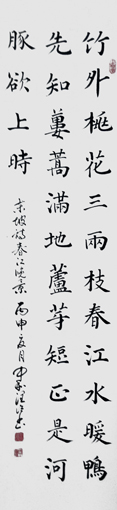 竹外桃花三兩枝春江水暖鴨
先知蔞蒿滿地蘆芽短正是河
豚欲上時
東坡詩春江晚景丙申夏月